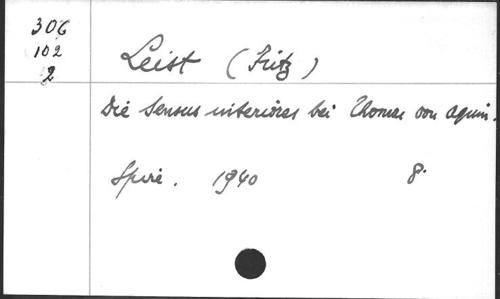 306
102
2
Leist (Fritz)
Die Sensus interiores bei Thomas von Aquin.
Spire. 1940 8°